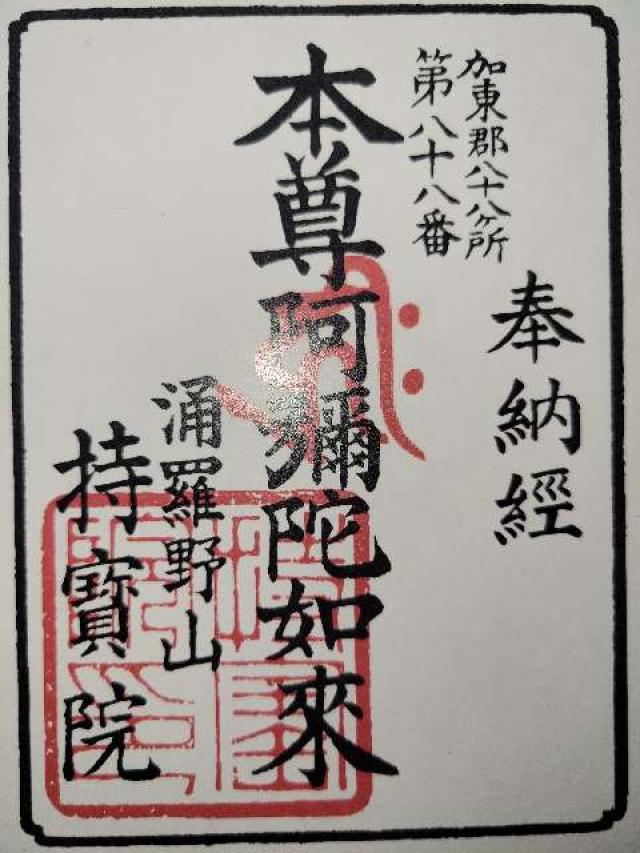 奉納經
加東郡八十八ヶ所
第八十八番
本尊阿彌陀如來
涌羅野山
持寶院